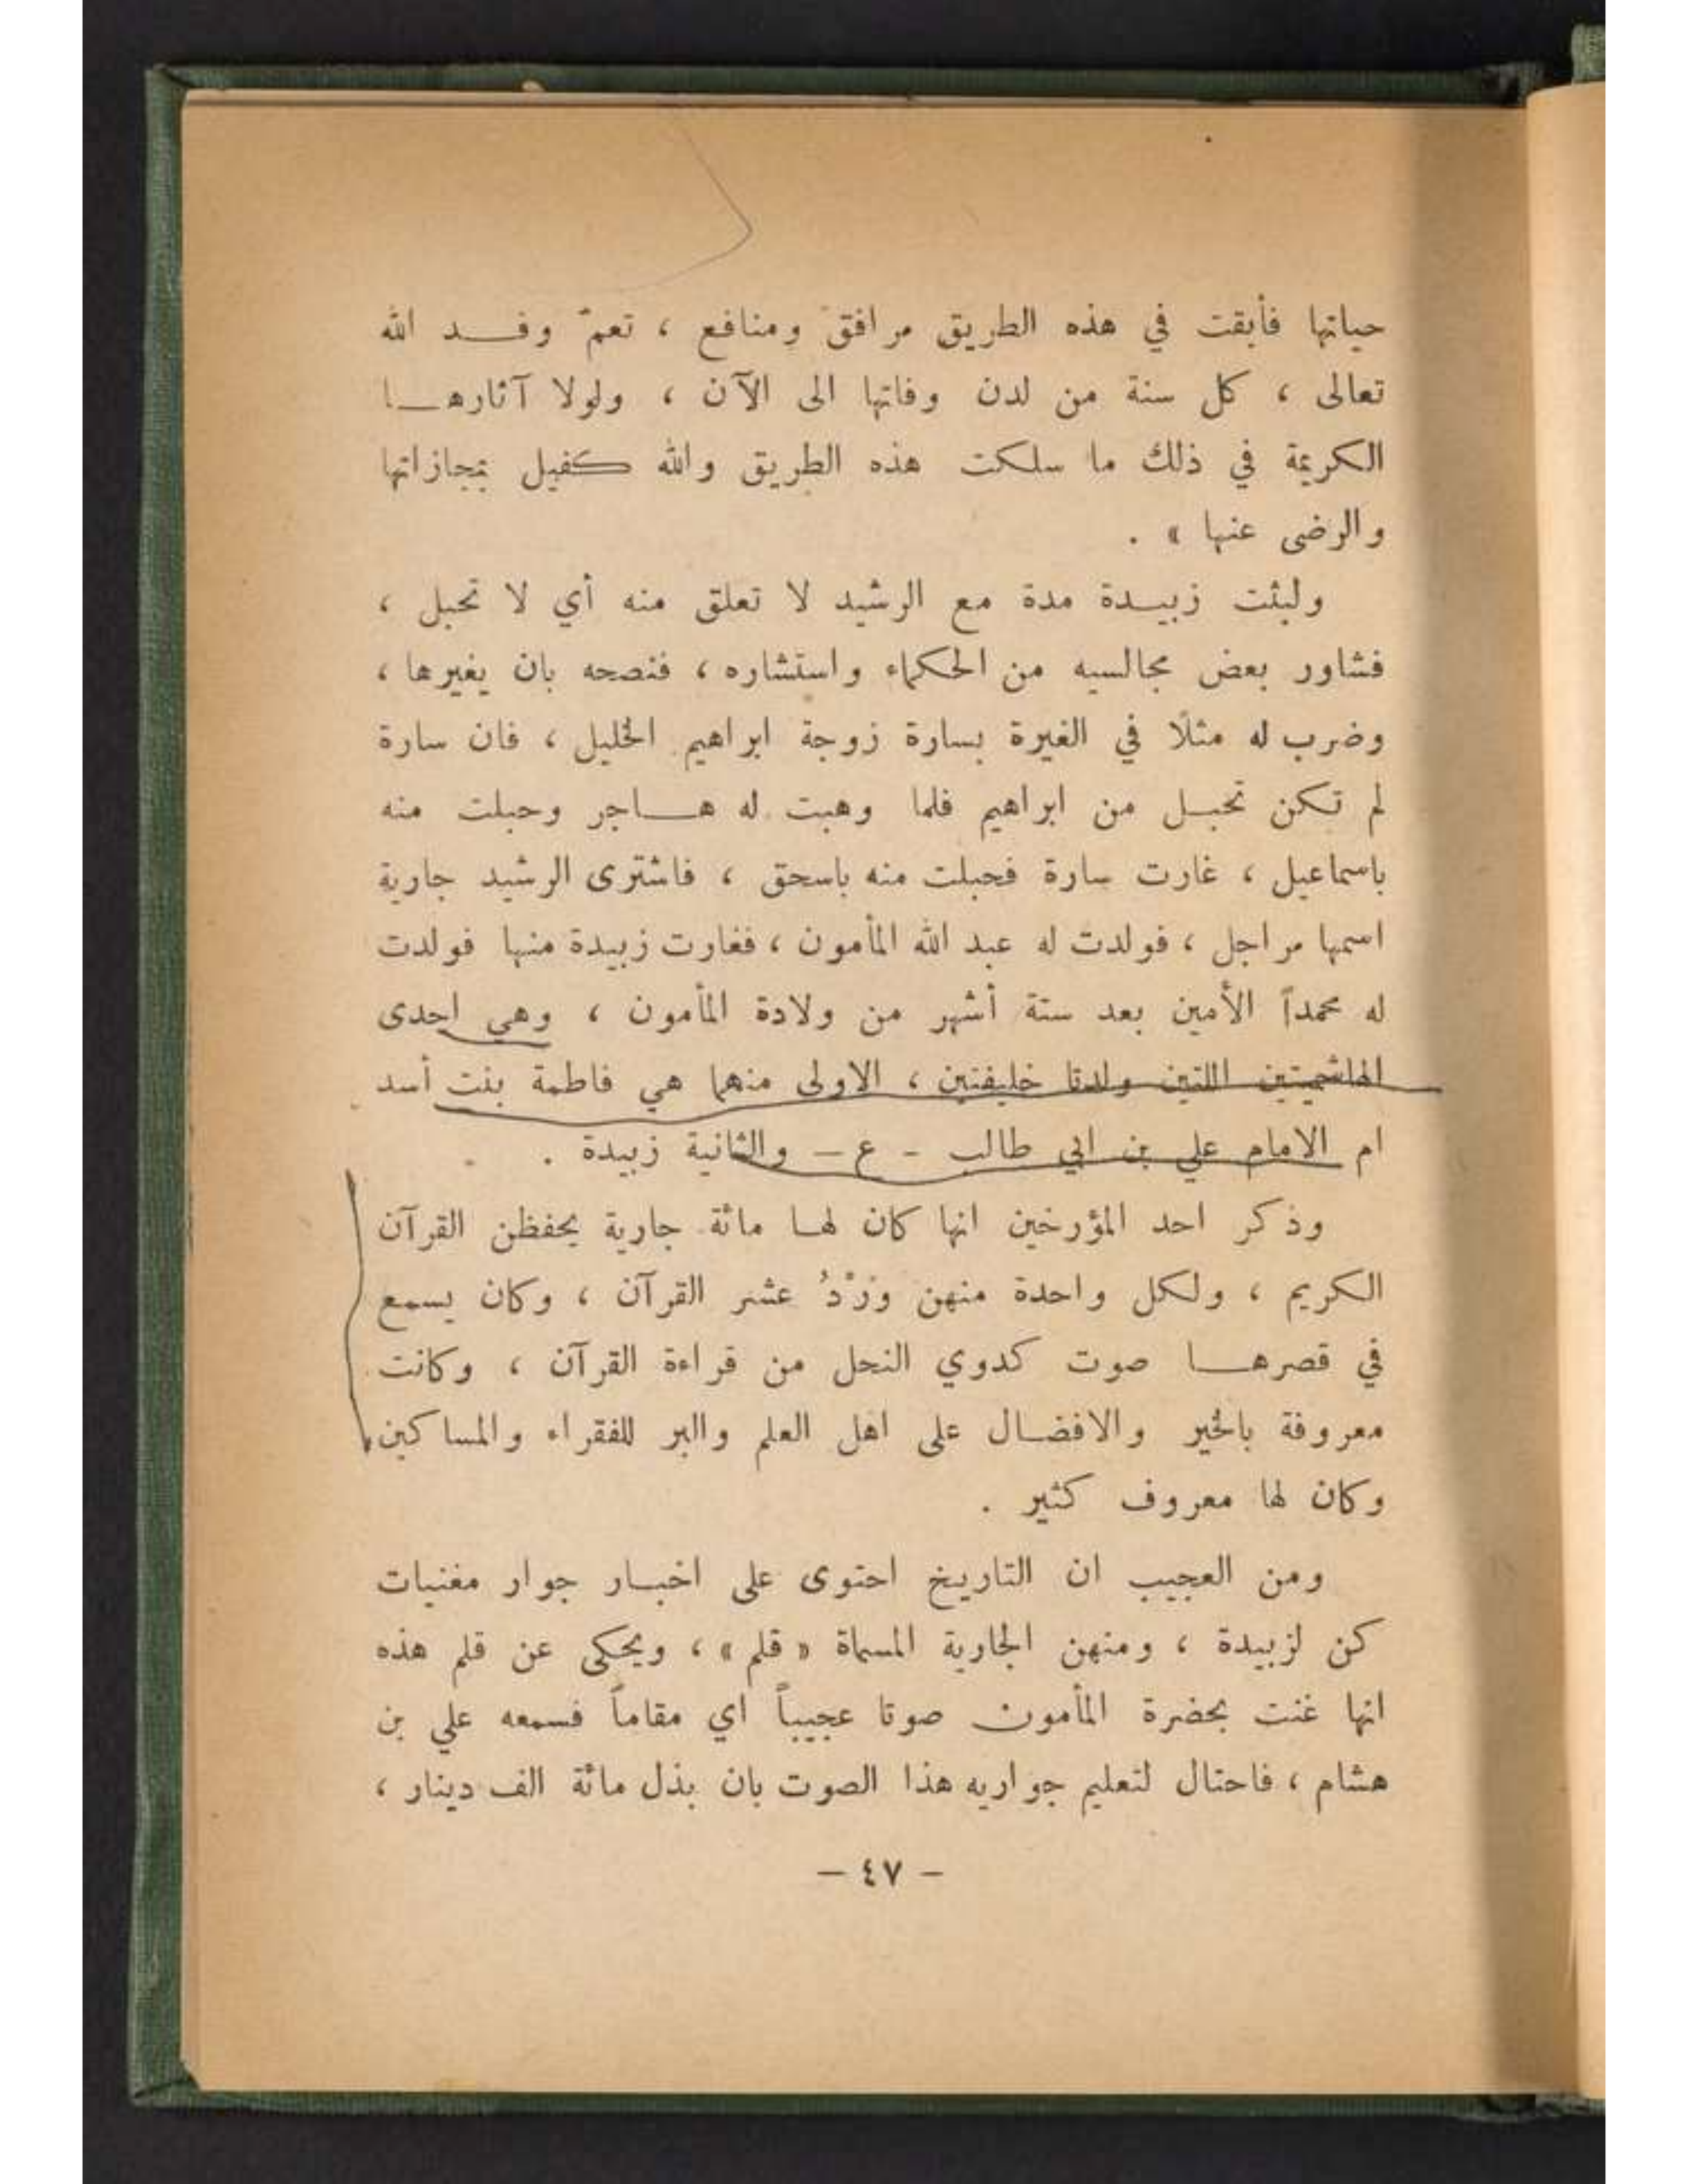 حياتها فأبقت في هذه الطريق مرافق ومنافع ، تعمّ وفــد الله
تعالى ، كل سنة من لدن وفاتها الى الآن ، ولولا آثارهــا
الكريمة في ذلك ما سلكت هذه الطريق والله كفيل بمجازاتها
والرضى عنها » .
ولبثت زبيــدة مدة مع الرشيد لا تعلق منه أي لا تحبل ،
فشاور بعض مجالسيه من الحكماء واستشاره ، فنصحه بان يغيرها ،
وضرب له مثلًا في الغيرة بسارة زوجة ابراهيم الخليل ، فان سارة
لم تكن تحبــل من ابراهيم فلما وهبت له هــاجر وحبلت منه
باسماعيل ، غارت سارة فحبلت منه باسحق ، فاشترى الرشيد جارية
اسمها مراجل ، فولدت له عبد الله المأمون ، فغارت زبيدة منها فولدت
له محمداً الأمين بعد ستة أشهر من ولادة المأمون ، وهي احدى
الهاشميتين اللتين ولدتا خليفتين ، الاولى منهما هي فاطمة بنت أسد
ام الامام علي بن ابي طالب - ع – والثانية زبيدة .
وذكر احد المؤرخين انها كان لهــا مائة جارية يحفظن القرآن
الكريم ، ولكل واحدة منهن ورْدُ عشر القرآن ، وكان يسمع
في قصرهــا صوت كدوي النحل من قراءة القرآن ، وكانت
معروفة بالخير والافضــال على اهل العلم والبر للفقراء والمساكين
وكان لها معروف كثير .
ومن العجيب ان التاريخ احتوى على اخبــار جوار مغنيات
كن لزبيدة ، ومنهن الجارية المسماة « قلم » ، ويحكى عن قلم هذه
انها غنت بحضرة المأمون صوتا عجيباً اي مقاماً فسمعه علي بن
هشام ، فاحتال لتعليم جواريه هذا الصوت بان بذل مائة الف دينار ،
– ٤٧ –